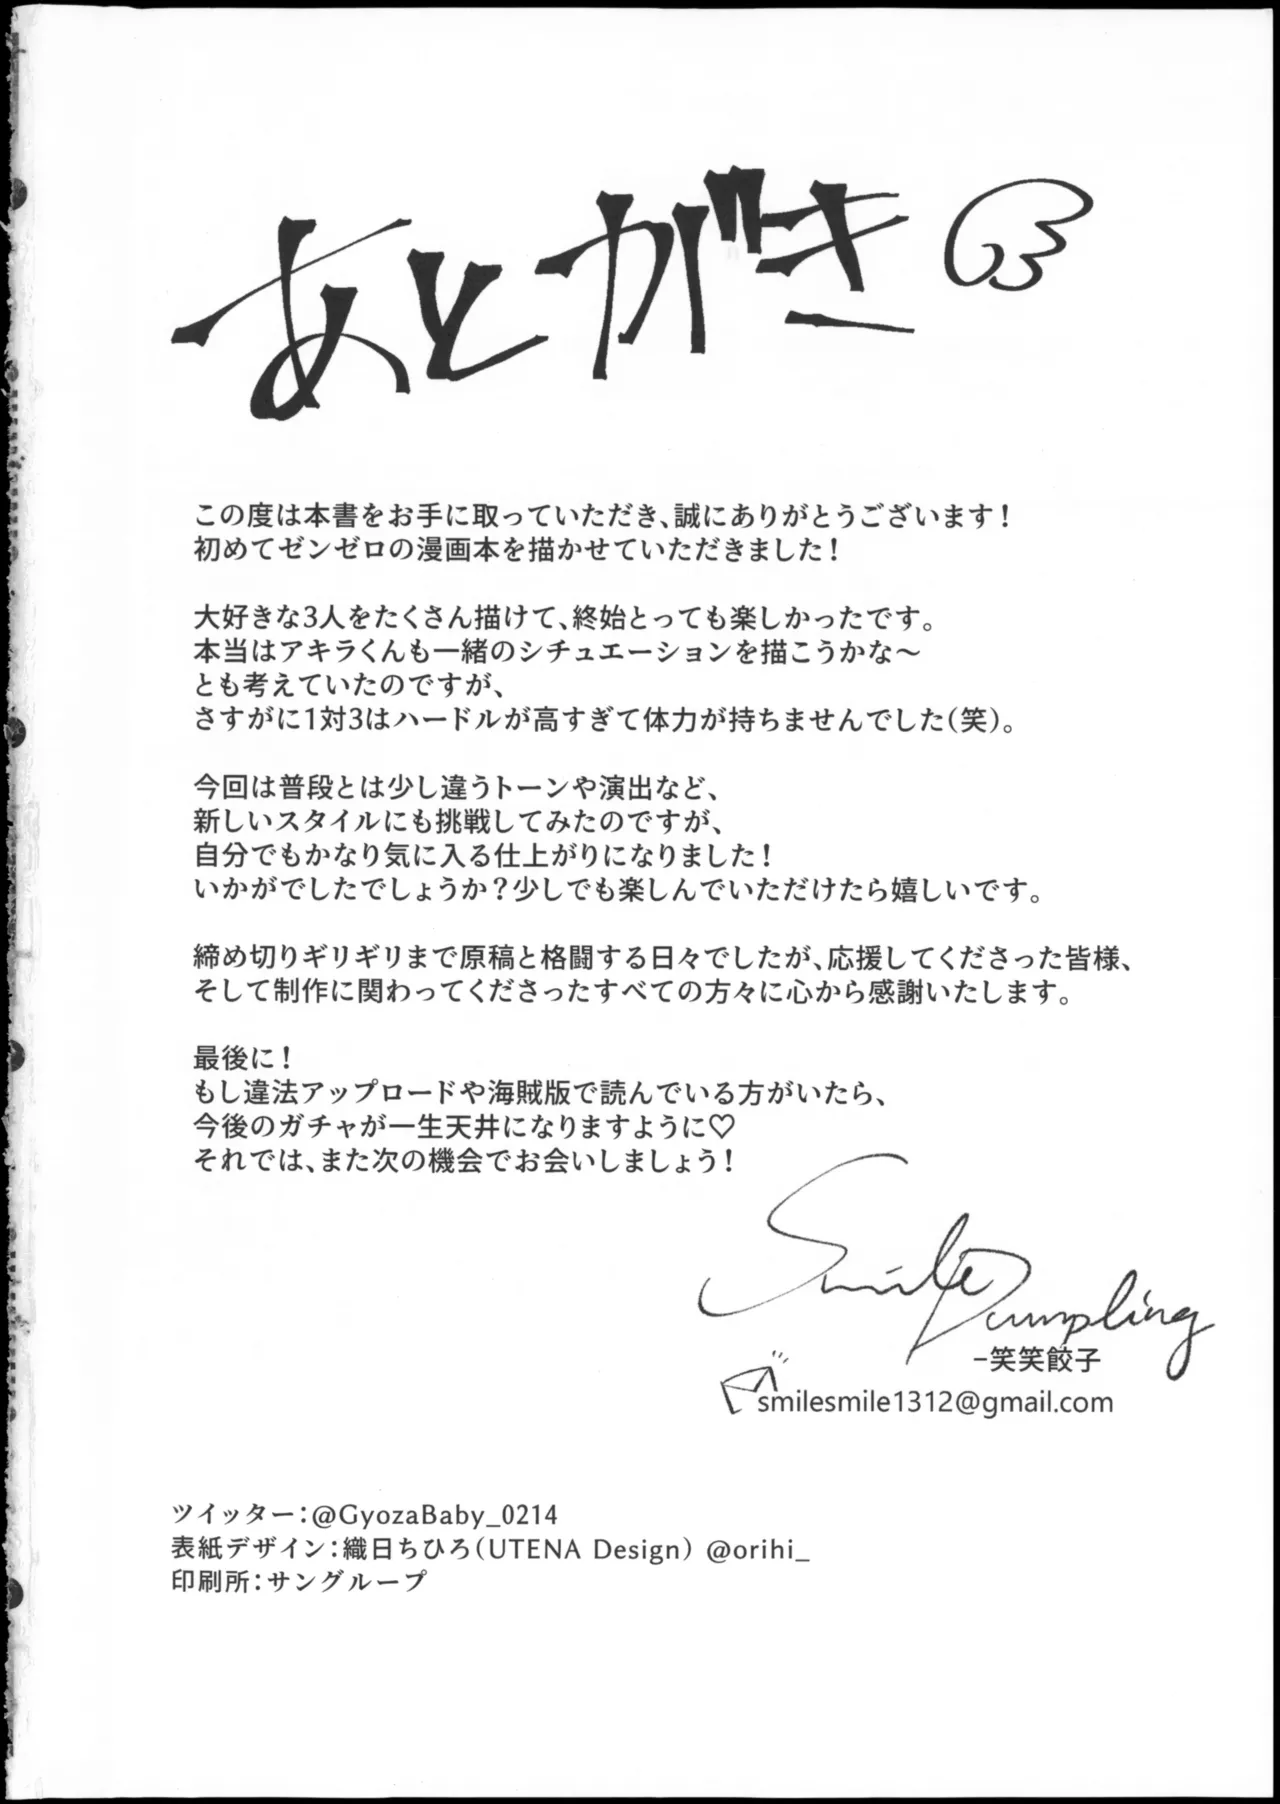 あとがき
この度は本書をお手に取っていただき、誠にありがとうございます！
初めてゼンゼロの漫画本を描かせていただきました！
大好きな3人をたくさん描けて、終始とっても楽しかったです。
本当はアキラくんも一緒のシチュエーションを描こうかな〜
とも考えていたのですが、
さすがに1対3はハードルが高すぎて体力が持ちませんでした（笑）。
今回は普段とは少し違うトーンや演出など、
新しいスタイルにも挑戦してみたのですが、
自分でもかなり気に入る仕上がりになりました！
いかがでしたでしょうか？少しでも楽しんでいただけたら嬉しいです。
締め切りギリギリまで原稿と格闘する日々でしたが、応援してくださった皆様、
そして制作に関わってくださったすべての方々に心から感謝いたします。
最後に！
もし違法アップロードや海賊版で読んでいる方がいたら、
今後のガチャが一生天井になりますように♡
それでは、また次の機会でお会いしましょう！
Smile Dumpling
-笑笑餃子
smilesmile1312@gmail.com
ツイッター：@GyozaBaby_0214
表紙デザイン：織日ちひろ（UTENA Design） @orihi_
印刷所：サングループ